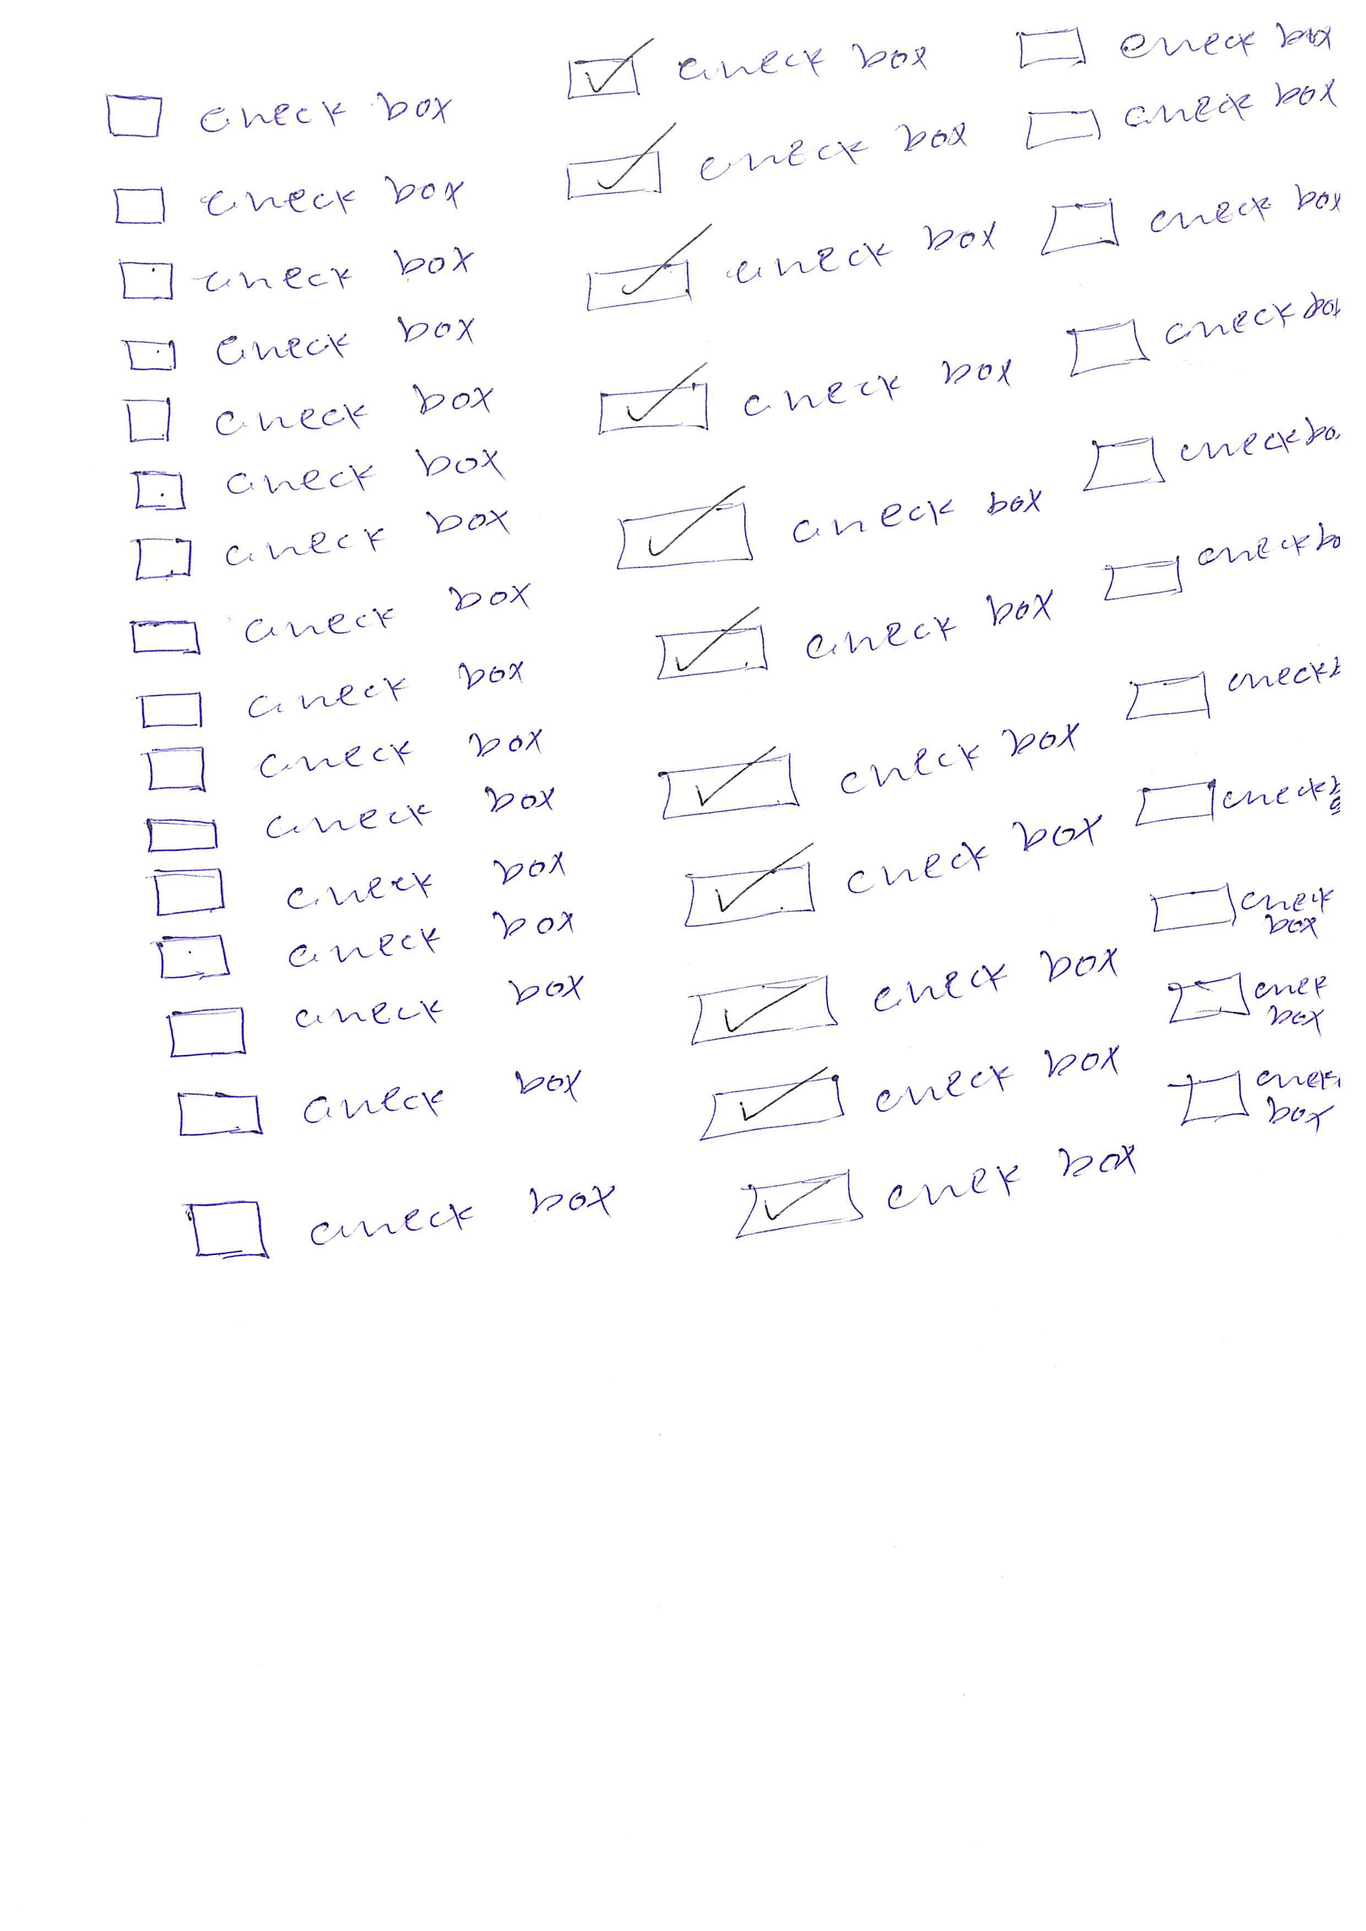 ☐ check box
☐ check box
☐ check box
☐ check box
☐ check box
☐ check box
☐ check box
☐ check box
☐ check box
☐ check box
☐ check box
☐ check box
☐ check box
☐ check box
☐ check box
☐ check box
☑ check box
☑ check box
☑ check box
☑ check box
☑ check box
☑ check box
☑ check box
☑ check box
☑ check box
☑ check box
☑ chek box
☐ check box
☐ check box
☐ check box
☐ check box
☐ check bo
☐ check bo
☐ check b
☐ check
☐ check
box
☐ chek
box
☐ chek
box